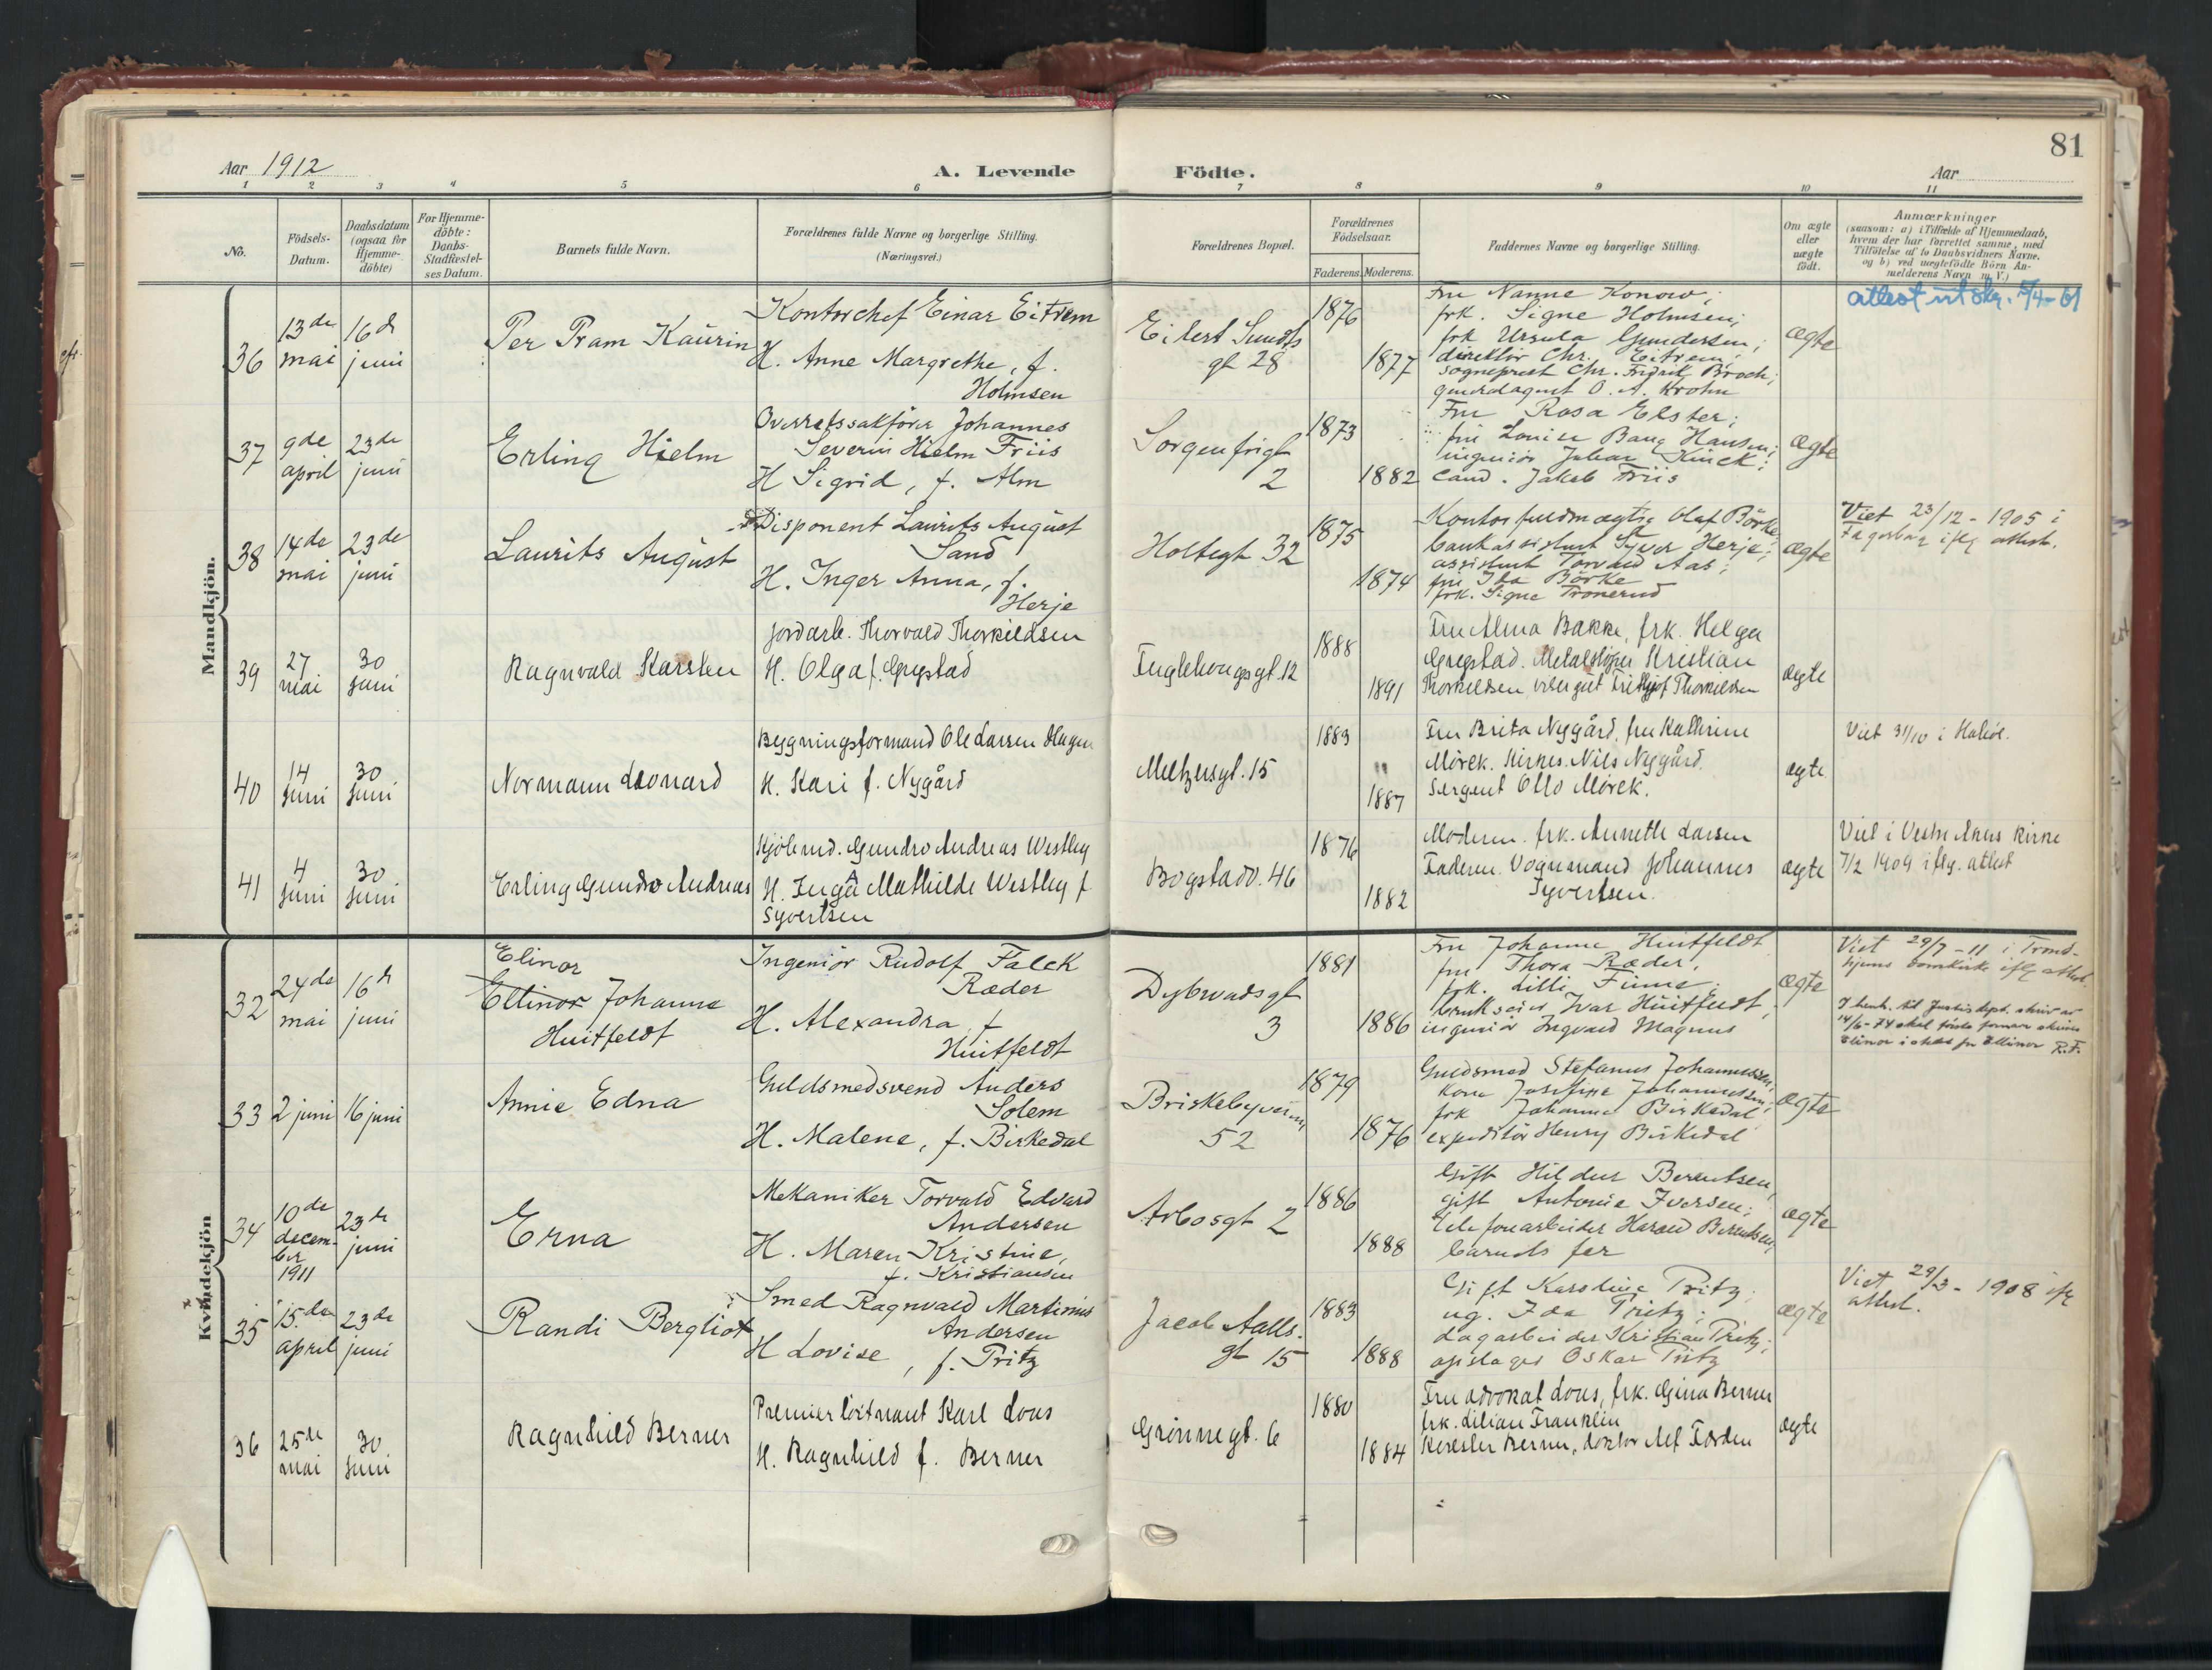 81
Aar 1912
A. Levende
Födte.
Aar
1 2 3 4 5 6 7 8 9 10 11
No.
Födsels-
Datum.
Daabsdatum
(ogsaa for
Hjemme-
döbte)
For Hjemme-
döbte:
Daabs-
Stadfæstel-
ses Datum.
Barnets fulde Navn.
Forældrenes fulde Navne og borgerlige Stilling.
(Næringsvei.)
Forældrenes Bopæl.
Forældrenes
Födselsaar.
Faderens. Moderens.
Faddernes Navne og borgerlige Stilling.
Om ægte
eller
uægte
födt.
Anmærkninger
(saasom: a) i Tilfælde af Hjemmedaab,
hvem der har forrettet samme, med
Tilföielse af to Daabsvidners Navne,
og b) ved uægtefödte Börn An-
melderens Navn m. V.)
Mandkjön.
36
13de
mai
16d
juni
Per Pram Kaurin
Kontorchef Einar Eitrem
H. Anne Margrethe, f.
Holmsen
Eilert Sundts
gt 28
1876
1877
Fru Nanne Konow;
frk. Signe Holmsen;
frk Ursula Gundersen;
direktör Chr. Eitrem;
sogneprest Chr. Fredrik Broch;
generalagent O. A. Krohn
ægte
attest utskr. 5/4-61
37
9de
april
23de
juni
Erling Hielm
Overretssakförer Johannes
Severin Hielm Friis
H Sigrid, f. Alm
Sorgenfrigt
2
1873
1882
Fru Rosa Elster;
fru Louise Bang Hansen;
ingeniör Johan Kinck;
cand. Jakob Friis
ægte
38
14de
mai
23de
juni
Laurits August
Disponent Laurits August
Sand
H. Inger Anna, f.
Herje
Holtegt 32
1875
1874
Kontorfuldmægtig Olaf Börke
bankassistent Syver Herje;
assistent Torvald Aas;
fru Ida Börke
frk. Signe Tronerud
ægte
Viet 23/12 - 1905 i
Fagerborg iflg attest.
39
27
mai
30
juni
Ragnvald Karsten
Jordarb. Thorvald Thorkildsen
H. Olga f. Gregstad
Fuglehaugsgt. 12
1888
1891
Fru Alma Bakke, frk. Helga
Gregstad. Metalstöper Kristian
Thorkildsen, visergut Frithjof Thorkildsen
ægte
40
14
juni
30
juni
Normann Leonard
Bygningsformand Ole Larsen Hagen
H. Kari f. Nygård
Meltzersgt. 15
1883
1887
Fru Brita Nygård, fru Kathrine
Mörck. Kirkes. Nils Nygård.
Sergent Otto Mörck.
ægte
Viet 31/10 i Halsö.
41
4
juni
30
juni
Erling Gundro Andreas
Kjöbmd. Gundro Andreas Westley
H. Inga Mathilde Westley f
Syvertsen
Bogstadv. 46
1876
1882
Moderen. frk. Annette Larsen
Faderen. Vognmand Johannes
Syvertsen.
ægte
Viet i Vestre Akers kirke
7/2 1909 iflg. attest
Kvindekjön
32
24de
mai
16d
juni
Elinor
Ellinor Johanne
Huitfeldt
Ingeniör Rudolf Falck
Ræder
H. Alexandra f
Huitfeldt
Dybwadsgt
3
1881
1886
Fru Johanne Huitfeldt
fru Thora Ræder,
frk. Lilli Finne;
brukseier Ivar Huitfeldt,
ingeniör Ingvald Magnus
ægte
Viet 29/7 - 11 i Trond-
hjems domkirke iflg attest.
I henh. til Justisdept. skriv av
14/6-74 skal förste fornavn skrives
Elinor i stedet for Ellinor R.F.
33
2 juni
16 juni
Annie Edna
Guldsmedsvend Anders
Solem
H. Malene, f. Birkedal
Briskebyveien
52
1879
1876
Guldsmed Stefanus Johannessen,
kone Josefine Johannessen;
frk Johanna Birkedal
expeditör Henry Birkedal
ægte
34
10de
decem-
ber
1911
23de
juni
Erna
Mekaniker Torvald Edvard
Andersen
H. Maren Kristine,
f. Kristiansen
Arbosgt 2
1886
1888
Gift Hildur Berentsen,
gift Antonie Iversen;
telefonarbeider Harald Berentsen,
barnets far
ægte
35
15.de
april
23de
juni
Randi Bergliot
Smed Ragnvald Martinius
Andersen
H Lovise, f. Pritz
Jacob Aalls.
gt 15
1883
1888
Gift Karoline Pritz;
ug. Ida Pritz;
dagarbeider Kristian Pritz;
opslager Oskar Pritz
ægte
Viet 29/3 - 1908 iflg
attest.
36
25de
mai
30
juni
Ragnhild Berner
Premierlöitnant Karl Lous
H. Ragnhild f. Berner
Grönnegt. 6
1880
1884
Fru advokat Lous, frk. Gina Berner
frk. Lilian Franklin
Berner, doktor Alf Förden
ægte